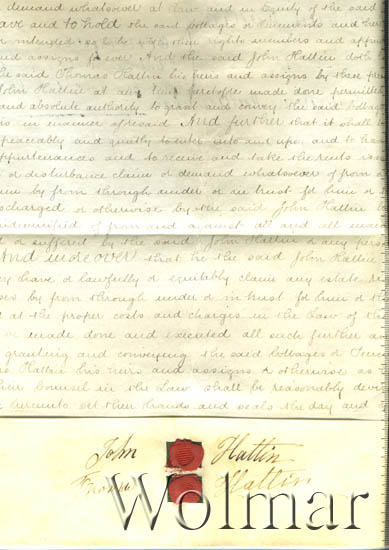 demand whatsoever at law and in Equity of the said
ave and to hold the said cottages or tenements and
intended so to be with their rights members and
and assigns for ever And the said John Hattin doth
he said Thomas Hattin his heirs and assigns by these
John Hattin at any time heretofore made done permitted
and absolute authority to grant and convey the said
in manner aforesaid And further that it shall
peaceably and quietly to enter into and upon and to
appurtenances and to receive and take the rents
or disturbance claim or demand whatsoever of from or
by from through under or in trust for him or
discharged or otherwise by the said John Hattin
indemnified of from and against all and all
or suffered by the said John Hattin or any
And moreover that he the said John Hattin
have or lawfully or equitably claim any estate
by from through under or in trust for him or
at the proper costs and charges in the Law of the
or made done and executed all such further
granting and conveying the said Cottages or
Hattin his heirs and assigns or otherwise as
Counsel in the Law shall be reasonably
hereunto set their hands and seals the day and
John Hattin
Thomas Hattin
Wolmar